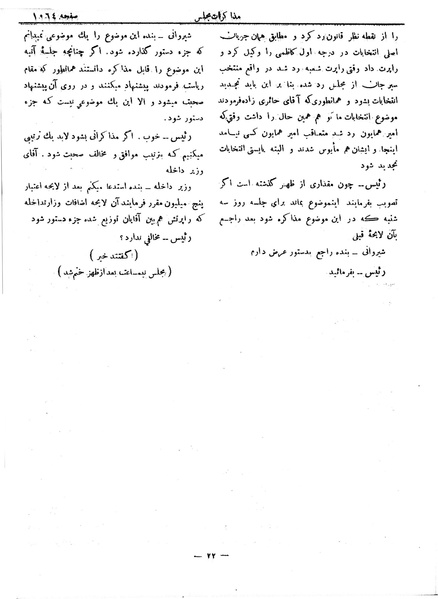 مذاکرات مجلس
صفحه ۱۰۶۴
را از نقطه نظر قانون رد کرد و مطابق همان جریانات
اصلی انتخابات در درجه اول کاظمی را وکیل کرد و
راپرت داد وقتی راپرت شعبه رد شد در واقع منتخب
سیرجان از مجلس رد شده بنا بر این باید تجدید
انتخابات بشود و همانطوری که آقای حائری زاده فرمودند
موضوع انتخابات ما تو هم همین حال را داشت وقتی که
امیر همایون رد شد متعاقب امیر همایون کسی نیامد
اینجا و ایشان هم مأیوس شدند و البته بایستی انتخابات
تجدید شود
رئیس ــ چون مقداری از ظهر گذشته است اگر
تصویب بفرمایند اینموضوع بماند برای جلسه روز سه
شنبه که در این موضوع مذاکره شود بعد راجع
بآن لایحهٔ قبلی
شیروانی ــ بنده راجع بدستور عرض دارم
رئیس ــ بفرمائید
شیروانی ــ بنده این موضوع را یك موضوعی نمیدانم
که جزء دستور گذارده شود. اگر چنانچه جلسهٔ آتیه
این موضوع را قابل مذاکره دانستند همانطور که مقام
ریاست فرمودند پیشنهاد میکنند و در روی آن پیشنهاد
صحبت میشود و الا این یك موضوعی نیست که جزء
دستور شود.
رئیس ــ خوب . اگر مذاکراتی بشود لابد یك ترتیبی
میکنیم که بترتیب موافق و مخالف صحبت شود . آقای
وزیر داخله
وزیر داخله ــ بنده استدعا میکنم بعد از لایحه اعتبار
پنج میلیون مقرر فرمایند آن لایحه اضافات وزارتداخله
که راپرتش هم بین آقایان توزیع شده جزء دستور شود
رئیس ــ مخالفی ندارد؟
( گفتند خیر )
( مجلس نیمساعت بعد از ظهر ختم شد )
ــ ۲۲ ــ